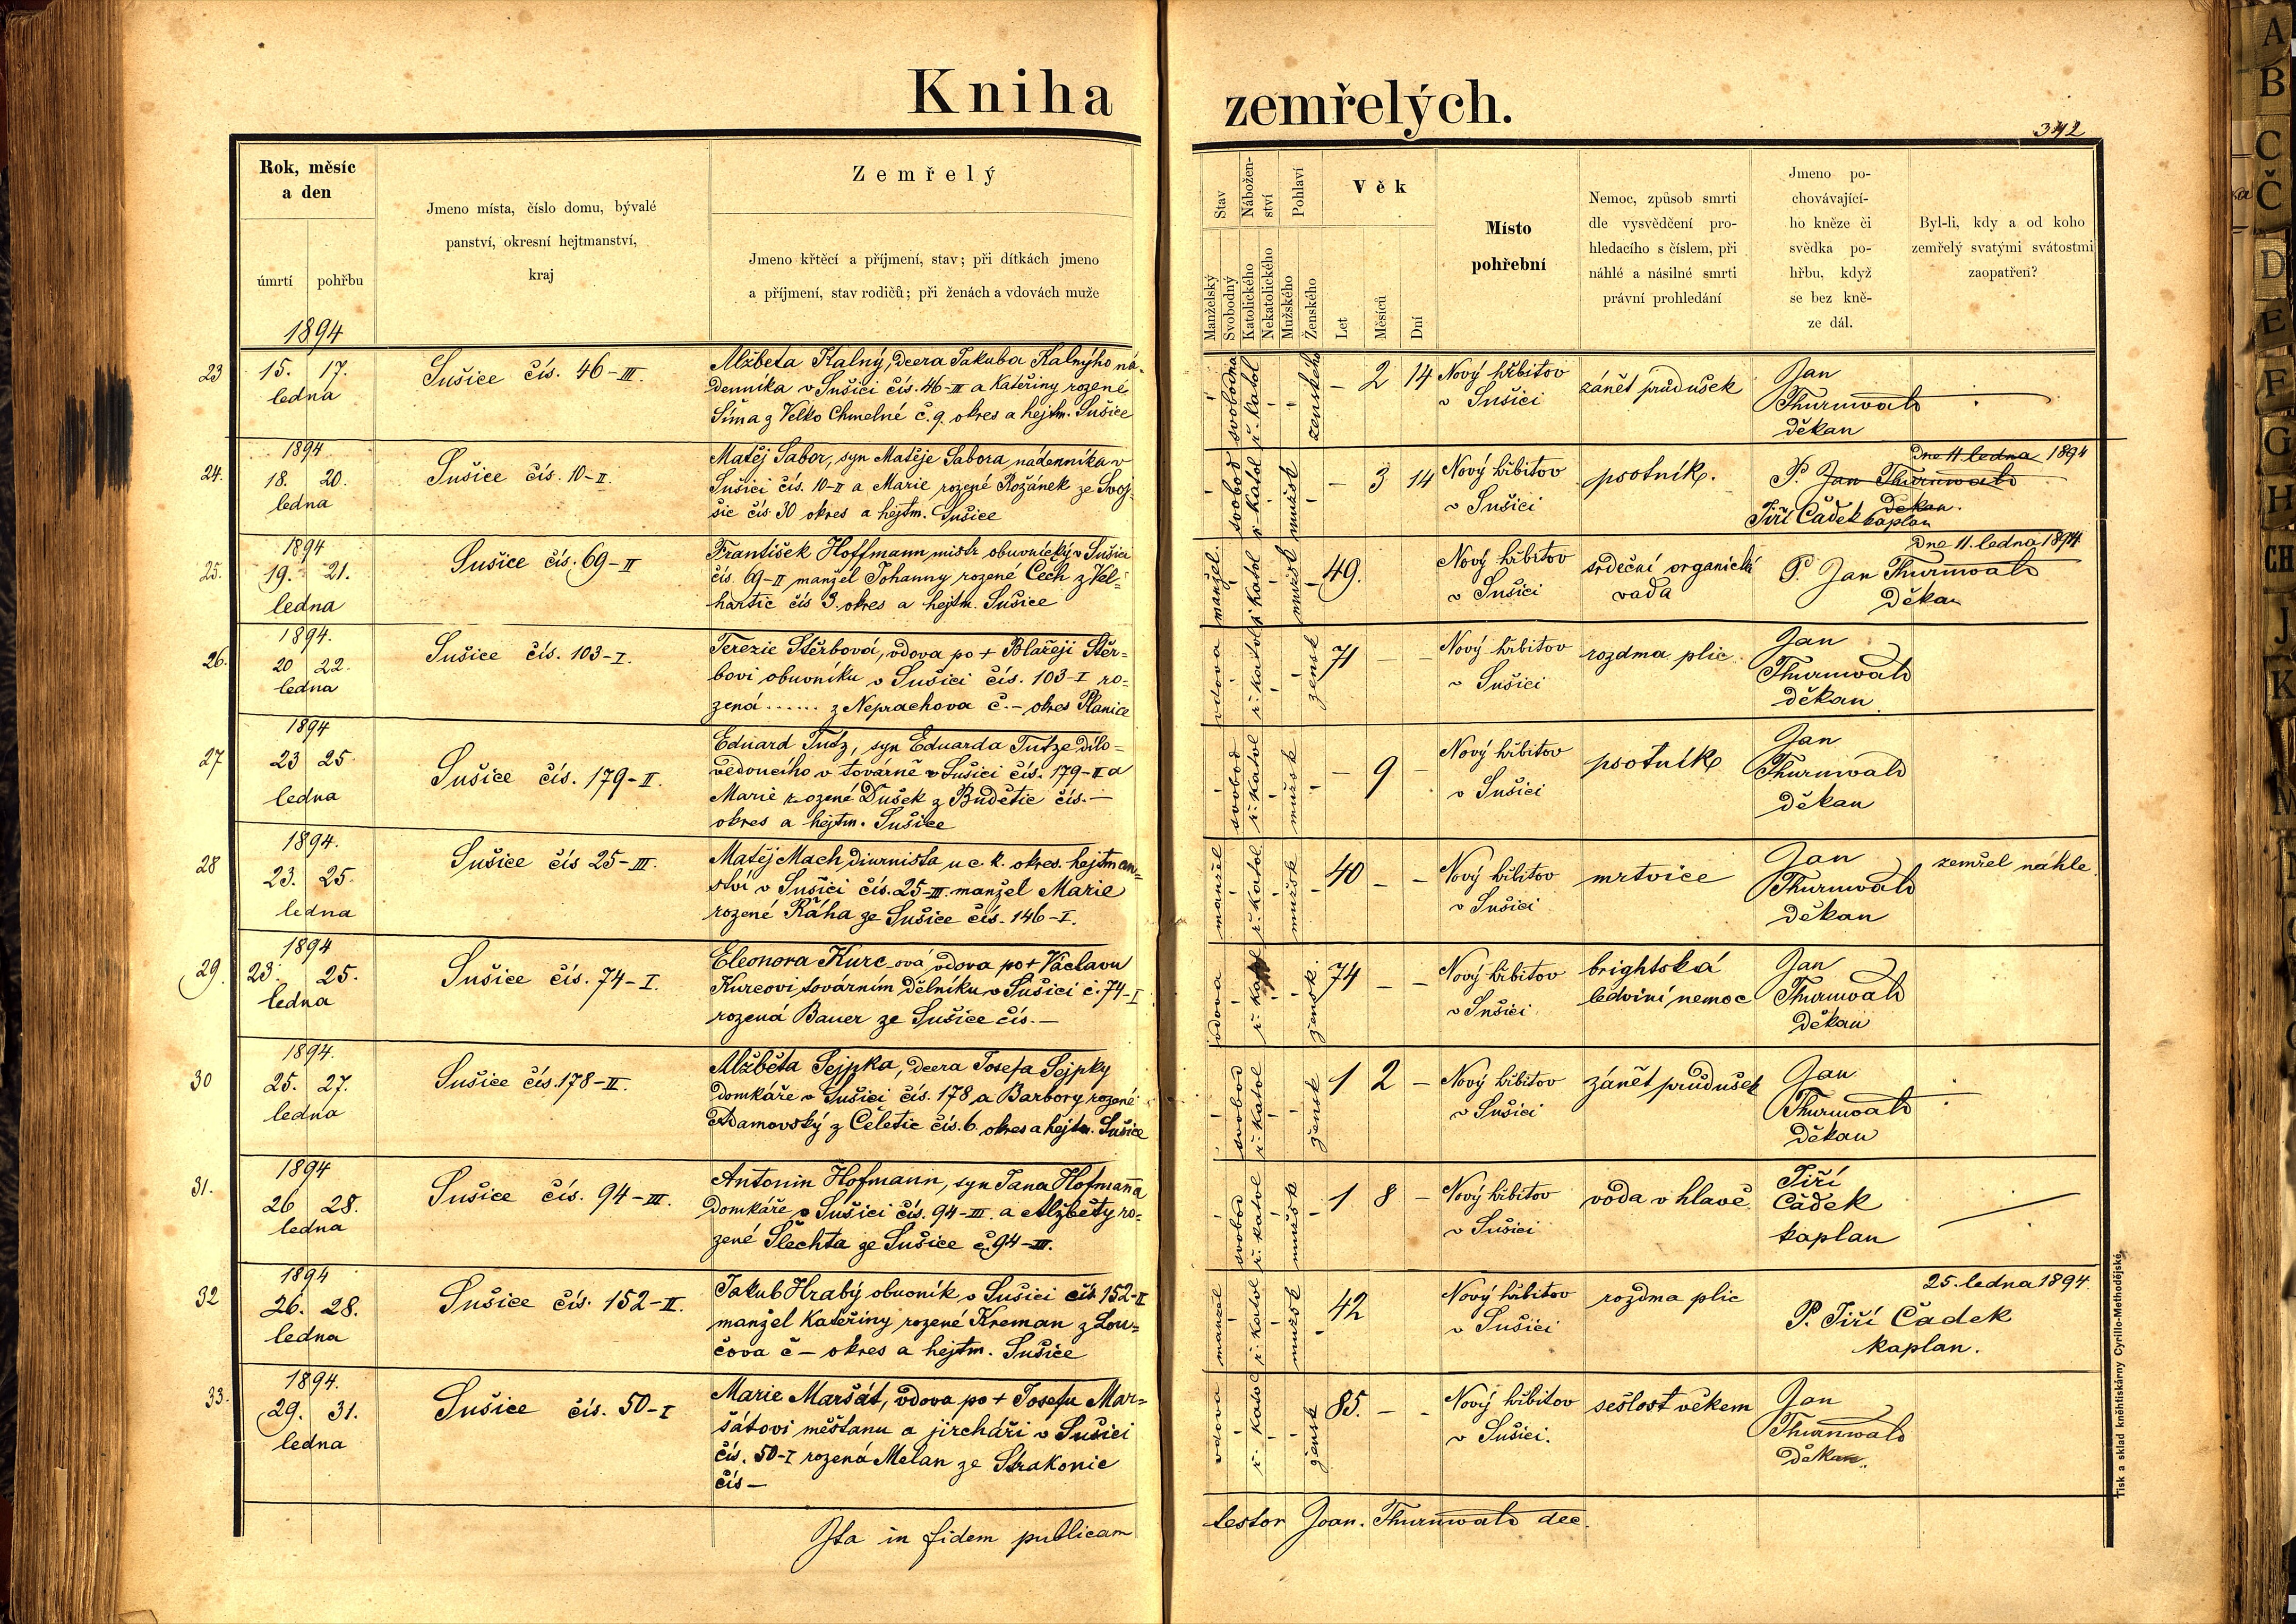 Kniha zemřelých.
342
Rok, měsíc
a den
úmrtí
pohřbu
Jmeno místa, číslo domu, bývalé
panství, okresní hejtmanství,
kraj
Zemřelý
Jmeno křtěcí a příjmení, stav; při dítkách jmeno
a příjmení, stav rodičů; při ženách a vdovách muže
Stav
Manželský
Svobodný
Nábožen-
ství
Katolického
Nekatolického
Pohlaví
Mužského
Ženského
Věk
Let
Měsíců
Dní
Místo
pohřební
Nemoc, způsob smrti
dle vysvědčení pro-
hledacího s číslem, při
náhlé a násilné smrti
právní prohledání
Jmeno po-
chovávající-
ho kněze či
svědka po-
hřbu, když
se bez kně-
ze dál.
Byl-li, kdy a od koho
zemřelý svatými svátostmi
zaopatřen?
1894
23
15. 17.
ledna
Sušice čís. 46-III.
Alžbeta Kalný, dcera Jakuba Kalnýho ná-
denníka v Sušici čís. 46-III a Kateřiny rozené
Šíma z Velko Chmelné č. 9. okres a hejtm. Sušice
svobodná
ř. katol
ženského
– 2 14
Nový hřbitov
v Sušici
zánět průdušek
Jan
Thurnwald
děkan
1894
24.
18. 20.
ledna
Sušice čís. 10-II.
Matěj Sabor, syn Matěje Sabora nadenníka v
Sušici čís. 10-II a Marie rozené Rožánek ze Svoj-
šic čís 30 okres a hejtm. Sušice
svobod
ř. katol
mužsk
– 3 14
Nový hřbitov
v Sušici
psotník.
Dne 11 ledna 1894
P. Jan Thurnwald
Děkan.
Jiří Čadek kaplan
1894
25.
19. 21.
ledna
Sušice čís. 69-II
František Hoffmann mistr obuvnický v Sušici
čís. 69-II manžel Johanny rozené Čech z Vel-
hartic čís 3. okres a hejtm. Sušice
manžel.
ř. katol
mužsk
49.
Nový hřbitov
v Sušici
srdeční organická
vada
Dne 11. ledna 1894
P. Jan Thurnwald
Děkan
1894.
26.
20 22.
ledna
Sušice čís. 103-I.
Terezie Štěrbová, vdova po + Blažeji Štěr=
bovi obuvníku v Sušici čís. 103-I ro=
zená ...... z Neprachova č. – okres Planice
vdova
ř. katol
žensk
71 – –
Nový hřbitov
v Sušici
rozdma plic
Jan
Thurnwald
děkan
1894
27
23 25
ledna
Sušice čís. 179-II.
Eduard Tutz, syn Eduarda Tutze dílo=
vedoucího v továrně v Sušici čís. 179-II a
Marie rozené Dušek z Budětic čís. –
okres a hejtm. Sušice
svobod
ř. katol
mužsk
– 9 –
Nový hřbitov
v Sušici
psotník
Jan
Thurnwald
děkan
1894.
28
23. 25.
ledna
Sušice čís 25-III.
Matěj Mach diurnista u c. k. okres. hejtman=
ství v Sušici čís. 25-III. manžel Marie
rozené Ráha ze Sušice čís. 146-I.
manžel
ř. katol
mužsk
40 – –
Nový hřbitov
v Sušici
mrtvice
Jan
Thurnwald
děkan
zemřel náhle.
1894
29.
23. 25.
ledna
Sušice čís. 74-I.
Eleonora Kurc-ová vdova po + Václavu
Kurcovi továrním dělníku v Sušici č. 74-I
rozená Bauer ze Sušice čís. –
vdova
ř. katol
žensk
74 – –
Nový hřbitov
v Sušici
brightská
ledviní nemoc
Jan
Thurnwald
děkan
1894.
30
25. 27.
ledna
Sušice čís. 178-II.
Alžběta Sejpka, dcera Josefa Sejpky
domkáře v Sušici čís. 178 a Barbory rozené
Adamovský z Čeletic čís. 6. okres a hejtm. Sušice
svobod
ř. katol
žensk
1 2 –
Nový hřbitov
v Sušici
zánět průdušek
Jan
Thurnwald
děkan
1894
31.
26 28.
ledna
Sušice čís. 94-III.
Antonin Hofmann, syn Jana Hofmanna
domkáře v Sušici čís. 94-III. a Alžběty ro=
zené Šlechta ze Sušice č. 94-III.
svobod
ř. katol
mužsk
1 8 –
Nový hřbitov
v Sušici
voda v hlavě.
Jiří
Čadek
kaplan
1894
32
26. 28.
ledna
Sušice čís. 152-II.
Jakub Hrabý obuvník v Sušici čís 152-II
manžel Kateřiny rozené Kreman z Lou=
čova č – okres a hejtm. Sušice
manžel
ř. katol
mužsk
42
Nový hřbitov
v Sušici
rozdma plic
25. ledna 1894.
P. Jiří Čadek
kaplan.
1894.
33.
29. 31.
ledna
Sušice čís. 50-I
Marie Maršát, vdova po + Josefu Mar=
šátovi měštanu a jircháři v Sušici
čís. 50-I rozená Melan ze Strakonic
čís –
vdova
ř. katol
žensk
85. – –
Nový hřbitov
v Sušici.
sešlost věkem
Jan
Thurnwald
děkan.
Ita in fidem publicam testor Joan. Thurnwald dec.
Tisk a sklad kněhtiskárny Cyrillo-Methodějské
A
B
C
Č
D
E
F
G
H
CH
J
K